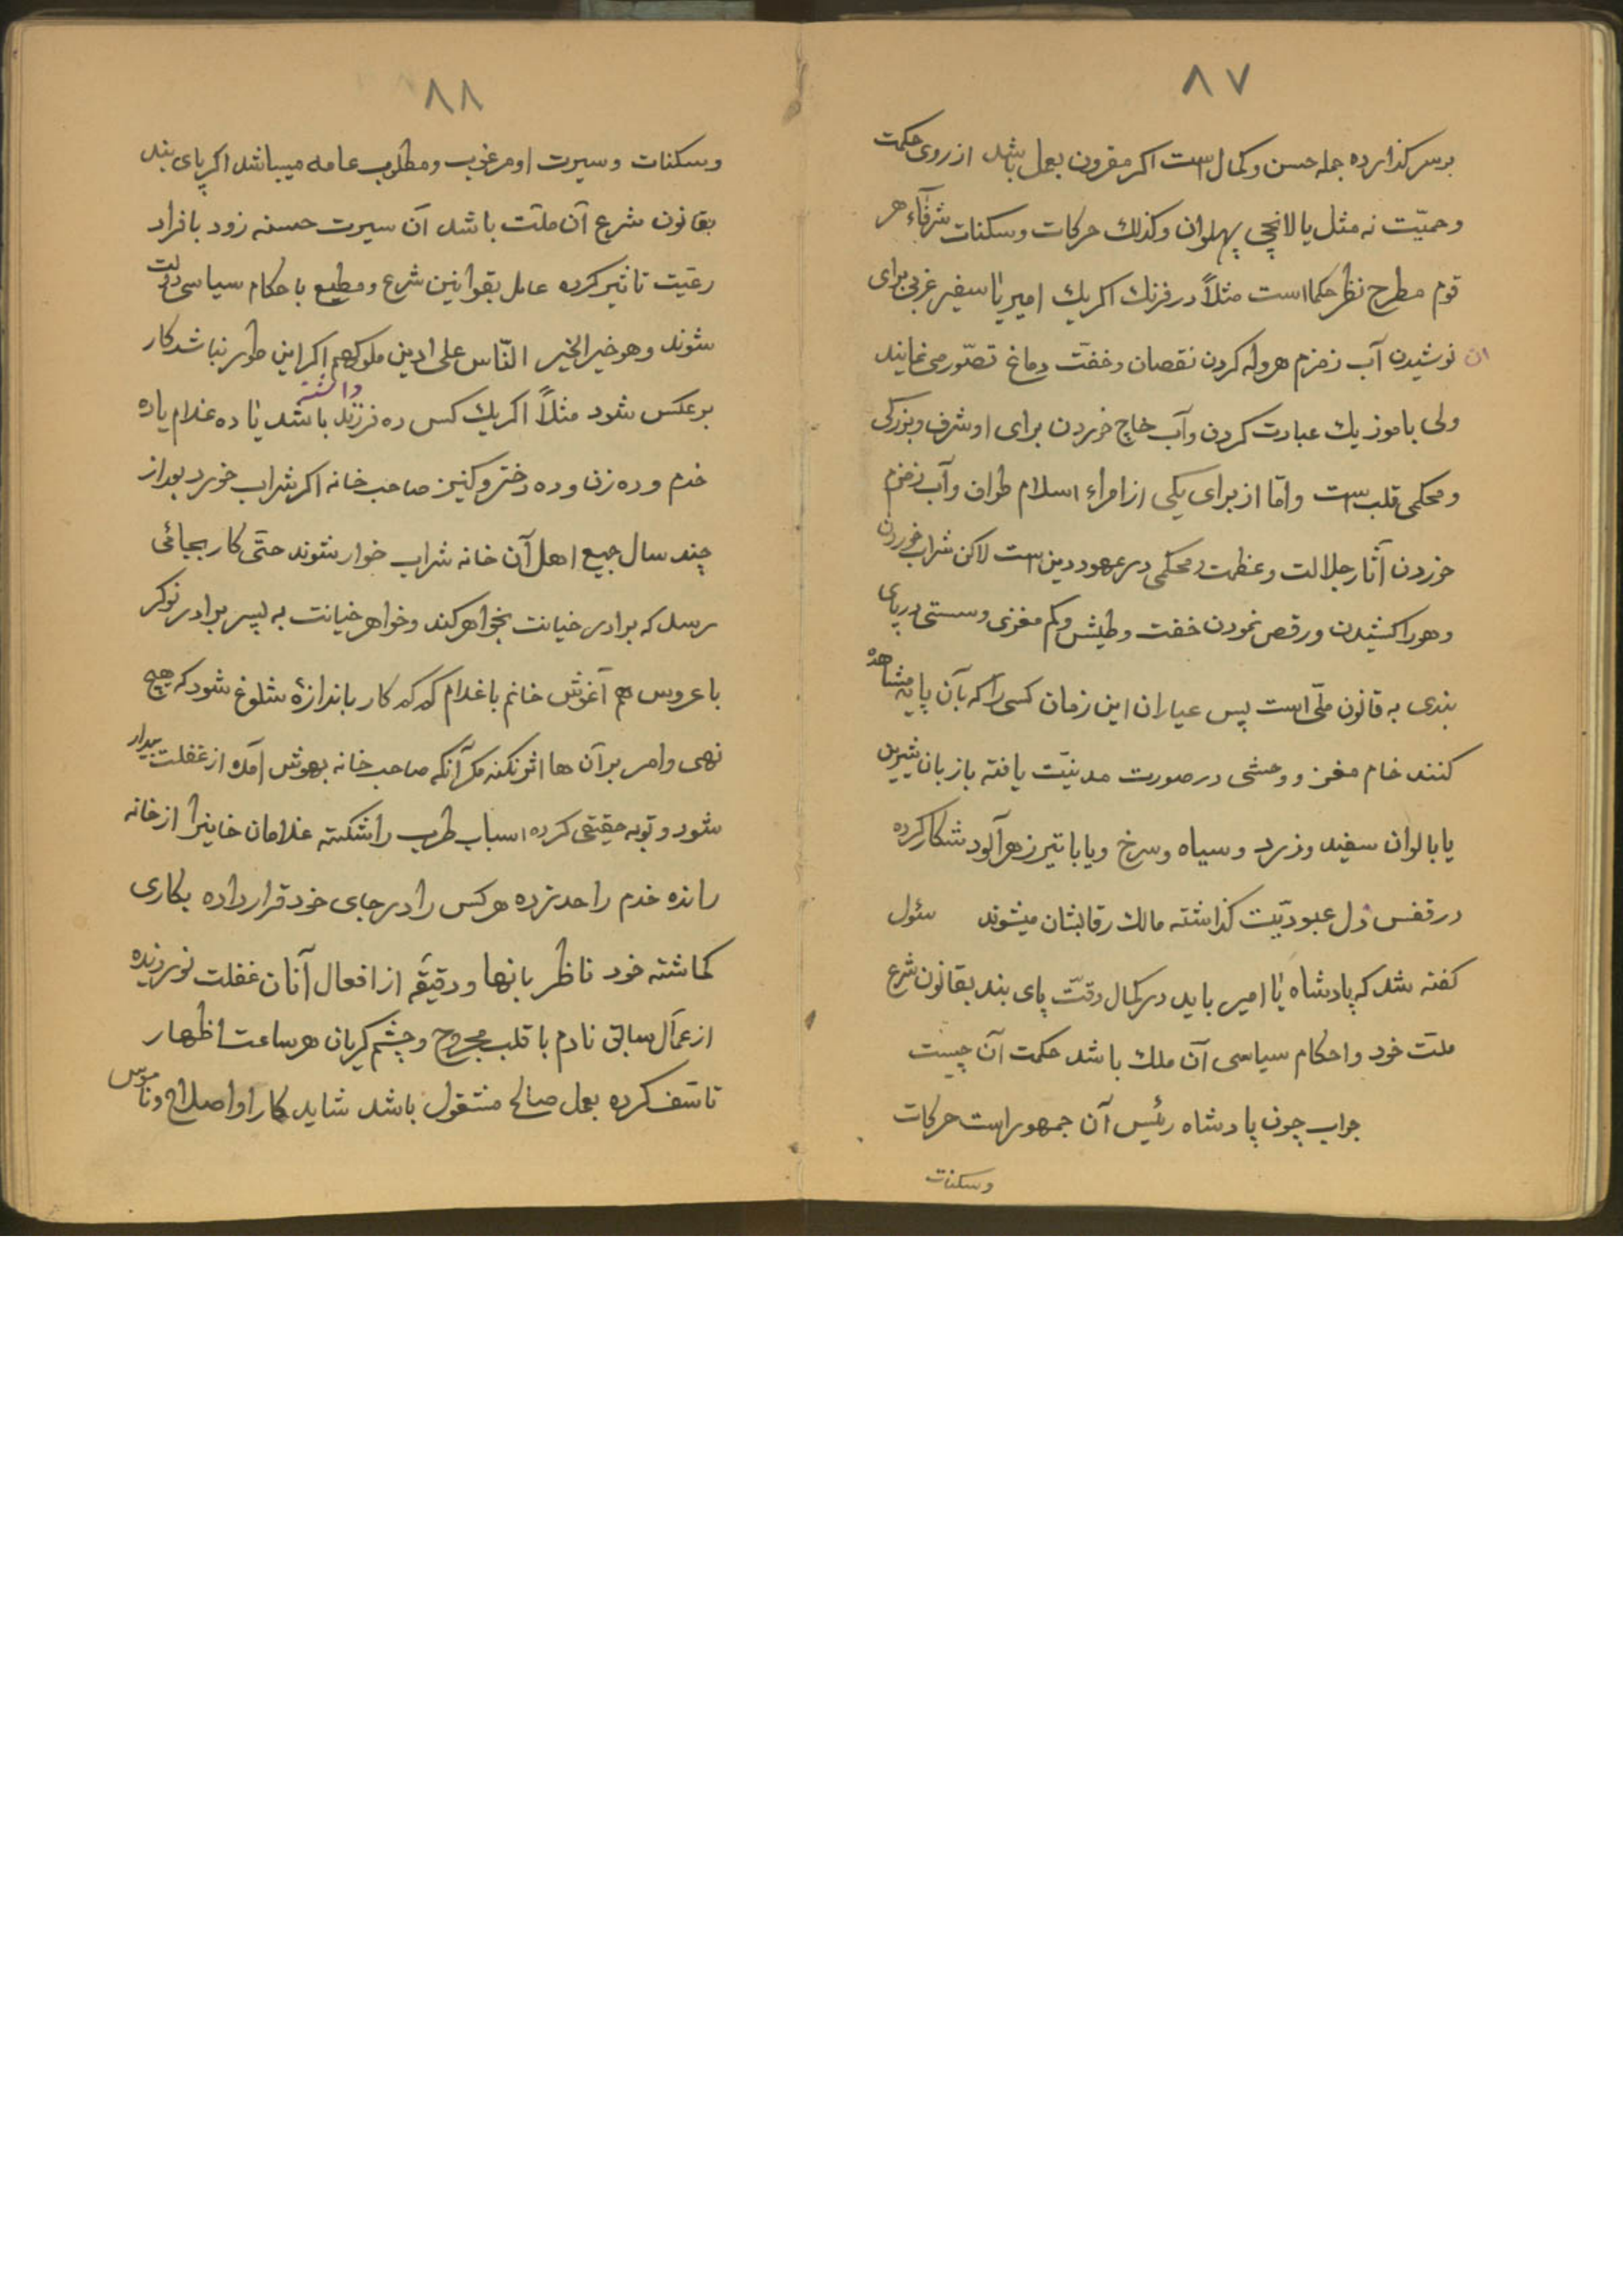 ٨٧
برسر کذارده جمله حسن و کمال است اکر مقرون بعمل باشد از روی حکمت
و حمیّت نه مثل یالانچی پهلوان و کذلك حرکات و سکنات شرفآء هر
قوم مطرح نظر حکما است مثلاً در فرنك اکر یك امیر یا سفیر غربی برای
ان نوشیدن آب زمزم هروله کردن نقصان و خفّت دماغ تصّور می نمایند
ولی با موزیك عبادت کردن و آب خاج خوردن برای او شرف و بزرکی
و محکمی قلب است و امّا از برای یکی از امراء اسلام طواف و آب زمزم
خوردن آثار جلالت و عظمت و محکمی در عهود دین است لاکن شراب خوردن
و هورا کشیدن و رقص نمودن خفت و طیش و کم مغزی و سستی در پای
بندی به قانون ملّی است پس عیاران این زمان کسی را که بآن پایه مشاهده
کنند خام مغز و وحشی در صورت مدنیّت یافته با زبان شیرین
یا بالوان سفید و زرد و سیاه و سرخ و یا با تیر زهرآلود شکار کرده
در قفس ذل عبودیّیت کذاشته مالك رقابشان میشوند سئول
کفته شد که پادشاه یا امیر باید در کمال دقّت پای بند بقانون شرع
ملت خود و احکام سیاسی آن ملك باشد حکمت آن چیست
جواب چون پادشاه رئیس آن جمهور است حرکات
و سکنات
٨٨
و سکنات و سیرت او مرغوب و مطلوب عامه میباشد اکر پای بند
بقانون شرع آن ملّت باشد آن سیرت حسنه زود بافراد
رعیّت تاثیر کرده عامل بقوانین شرع و مطیع باحکام سیاسی دولت
شوند و هو خیر الخیر النّاس علی ادین ملوکهم اکر این طور نباشد کار
داشته
برعکس شود مثلاً اکر یك کس ده فرزند باشد یا ده غلام یا ده
خدم و ده زن و ده دختر و کنیز صاحب خانه اکر شراب خورد بعد از
چند سال جمیع اهل آن خانه شراب خوار شوند حتّی کار بجائی
رسد که برادر خیانت بخواهر کند و خواهر خیانت به پسر برادر نوکر
با عروس هم آغوش خانم با غلام که که کار باندازۀ شلوغ شود که هیچ
نهی و امر بر آن ها اثر نکند مکر آنکه صاحب خانه بهوش آمده از غفلت بیدار
شود و توبه حقیقی کرده اسباب طرب را شکسته غلامان خاینرا از خانه
رانده خدم را حد زده هر کس را در جای خود قرار داده بکاری
کماشته خود ناظر بانها و دقیقه از افعال آنان غفلت نورزیده
از عمال سابق نادم با قلب مجروح و چشم کریان هر ساعت اظهار
تاسّف کرده بعمل صالح مشغول باشد شاید کار او اصلاح و ناموس